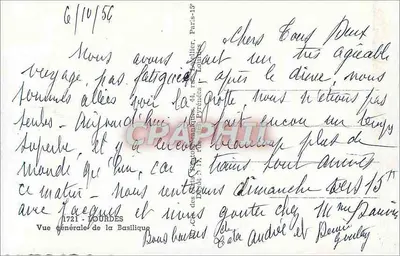 6/10/56
Chers Tous Deux
Nous avons fait un très agréable
voyage, pas fatiguées - après le dîner, nous
sommes allées voir la grotte nous n'étions pas
seules - Aujourd'hui fait encore un temps
superbe, et il y encore beaucoup plus de
monde qu'hier, car trains sont arrivés
ce matin - nous rentrerons dimanche vers 15h
avec Jacques et irons goûter chez Mme
1721 - LOURDES
Vue générale de la Basilique
Bons baisers André et
CPAPHIL
Paris-15e
Lourdes